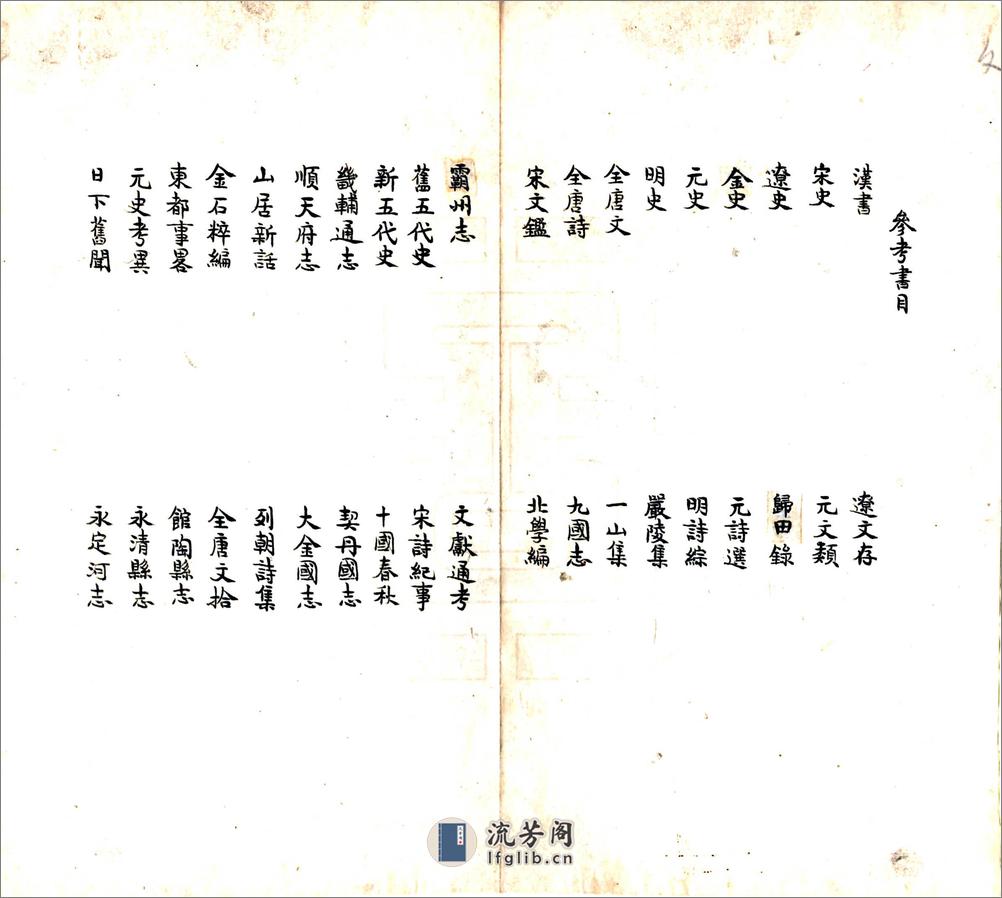 參考書目
漢書
遼文存
宋史
元文類
遼史
歸田錄
金史
元詩選
元史
明詩綜
明史
嚴陵集
全唐文
一山集
全唐詩
九國志
宋文鑑
北學編
霸州志
文獻通考
舊五代史
宋詩紀事
新五代史
十國春秋
畿輔通志
契丹國志
順天府志
大金國志
山居新話
列朝詩集
金石粹編
全唐文拾
東都事畧
館陶縣志
元史考異
永清縣志
日下舊聞
永定河志
流芳阁
lfglib.cn